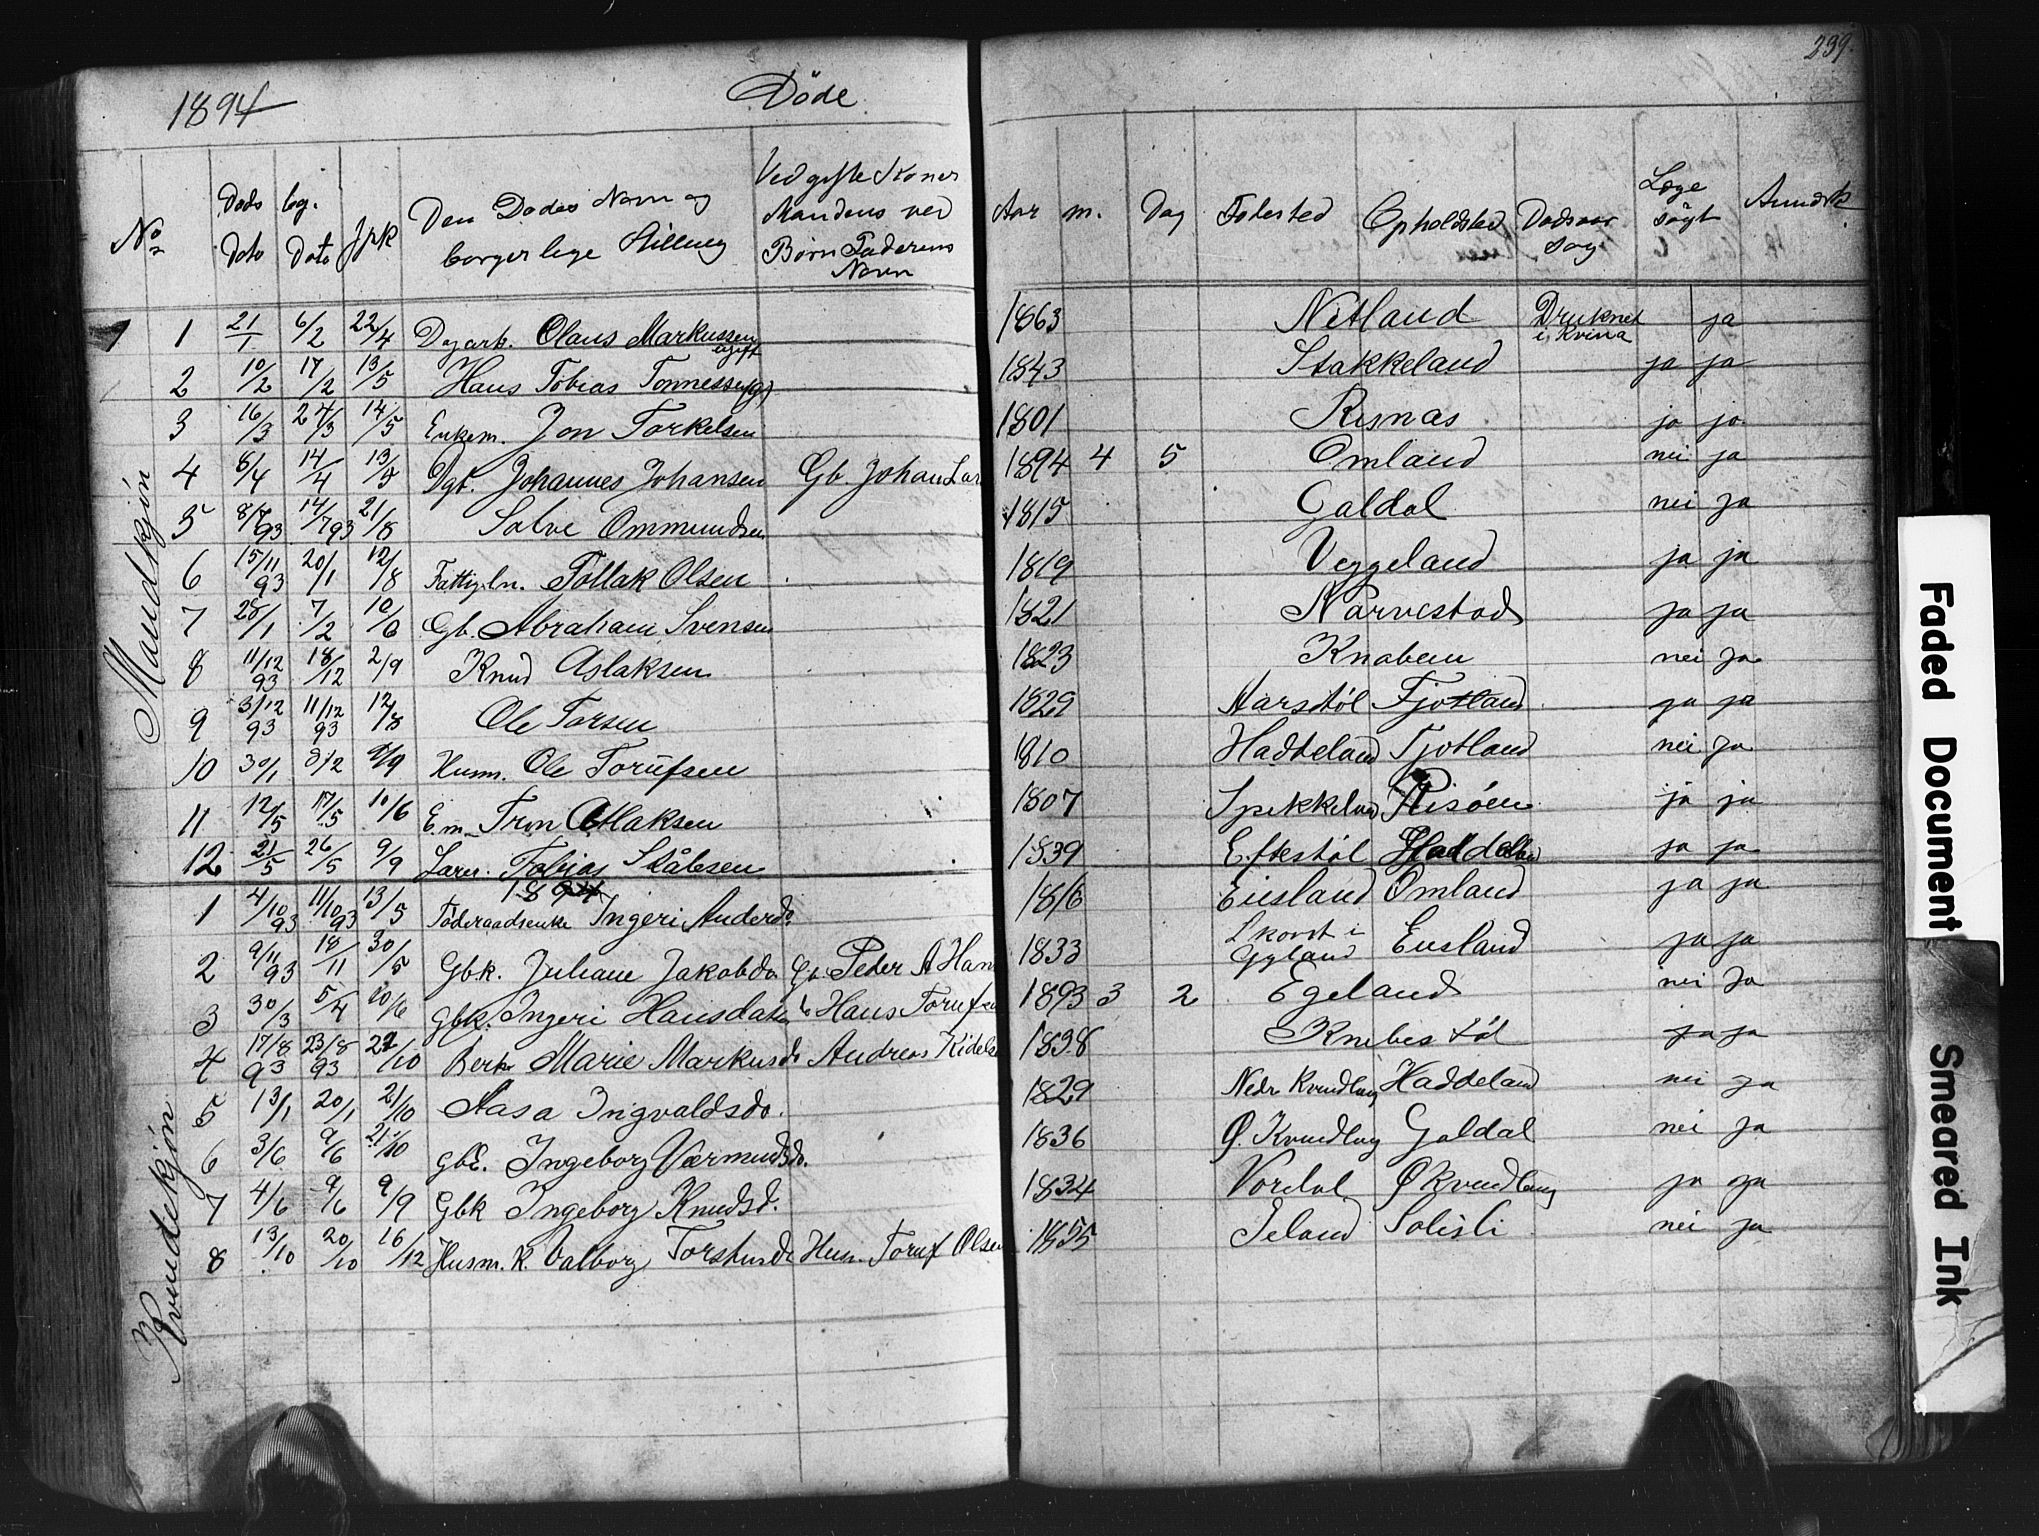 239.
1894 Döde
No Døds Dato beg. Dato Jpk Den Dødes Navn og borgerlige Stilling Ved gifte Koner Mandens ved Børn Faderens Navn Aar m. Dag Fødested Opholdsted Dødsaarsag Læge søgt Anmeldt
Mandkjøn
1 21/1 6/2 22/4 Dagarb. Olaus Markussen ugift 1863 Netland Druknet i Kvina ja
2 10/2 17/2 13/5 Hans Tobias Tonnessen (g) 1843 Stakkeland ja ja
3 16/3 24/3 14/5 Enkem. Jon Torkelsen 1801 Risnas ja ja
4 8/4 14/4 13/5 Dgb. Johannes Johansen Gb. Johan Lar 1894 4 5 Omland nei ja
5 8/7 93 14/7 93 21/8 Salve Ommundsen 1815 Galdal nei ja
6 15/11 93 20/1 12/8 Fattigln. Tollak Olsen 1819 Veggeland ja ja
7 28/1 7/2 10/6 Gb. Abraham Svensen 1821 Narvestad ja ja
8 11/12 93 18/12 2/9 Knud Aslaksen 1823 Knaben nei ja
9 3/12 93 11/12 93 12/8 Ole Torsen 1829 Aarstøl Fjotland ja ja
10 30/1 3/2 9/9 Husm. Ole Torufsen 1810 Haddeland Fjotland nei ja
11 12/5 17/5 10/6 E.m. Tron Atlaksen 1807 Spikkeland Risöen ja ja
12 21/5 26/5 9/9 Lærer. Tobias Stålesen 1839 Eftestøl Haddeland ja ja
1894
Kvindekjön
1 4/10 93 11/10 93 13/5 Föderaadsenke Ingeri Andersd. 1816 Eiesland Omland ja ja
2 9/11 93 18/11 30/5 Gbk. Juliane Jakobsd. Gb. Peder A Han 1833 Skovst i Gyland Eiesland ja ja
3 30/3 5/4 10/6 Gbk. Ingeri Hansdater Hans Torufsen 1893 3 2 Egeland nei ja
4 17/8 93 23/8 93 22/10 Marie Markusd. Andreas Kidels 1838 Knibestøl ja ja
5 13/1 20/1 21/10 Aasa Ingvaldsd. 1829 Nedr Kvindlog Haddeland nei ja
6 3/6 9/6 21/10 GbE. Ingeborg Værmundsd. 1836 Ø. Kvindlog Galdal nei ja
7 4/6 9/6 9/9 Gbk Ingeborg Knudsd. 1834 Vordal Ø Kvindlog ja ja
8 13/10 20/10 16/12 Husm. k. Valborg Torstensd. Husm. Toruf Olsen 1855 Jeland Solisli nei ja
Faded Document
Smeared Ink